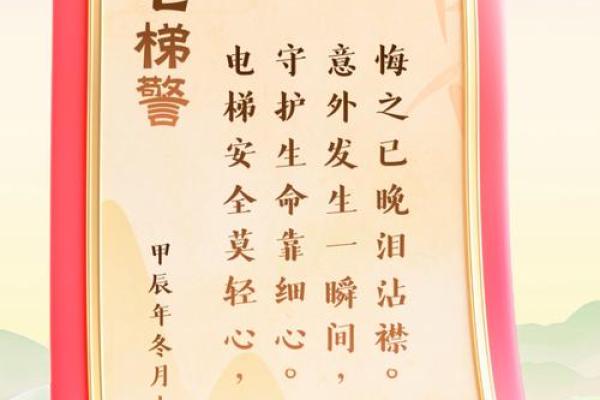 梯警
甲辰年冬月
电梯安全莫轻心，
守护生命靠细心。
意外发生一瞬间，
悔之已晚泪沾襟。